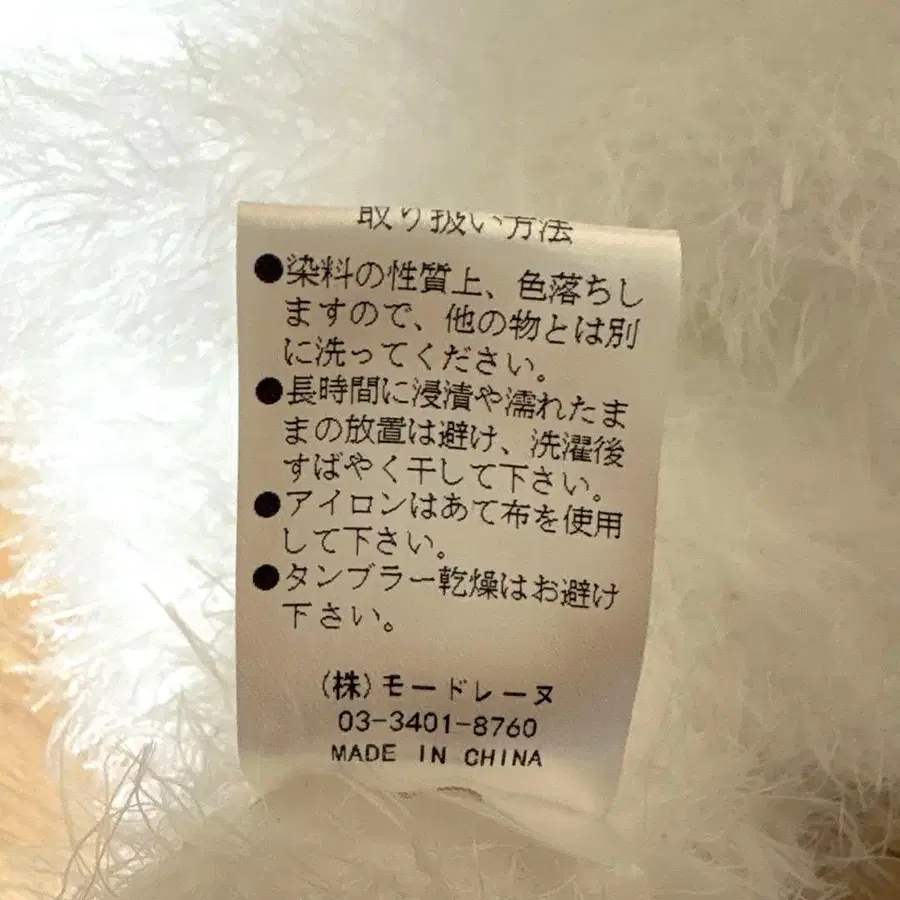 取り扱い方法
●染料の性質上、色落ちし
ますので、他の物とは別
に洗ってください。
●長時間に浸漬や濡れたま
まの放置は避け、洗濯後
すばやく干して下さい。
●アイロンはあて布を使用
して下さい。
●タンブラー乾燥はお避け
下さい。
(株)モードレーヌ
03-3401-8760
MADE IN CHINA